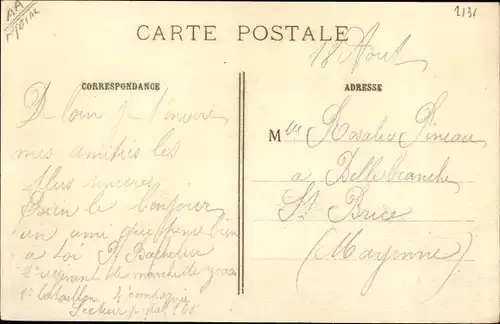 AA
2131
CARTE POSTALE
18 Aout
CORRESPONDANCE
ADRESSE
De loin je t'envoie
mes amitiés les
plus sincères
Bien le bonjour
un ami qui pense bien
a toi P Bachelier
2e régiment de marche de zouaves
1er bataillon 4e compagnie
Secteur postal 165
Mlle Rosalie Pineau
a Bellebranche
St Brice
(Mayenne)